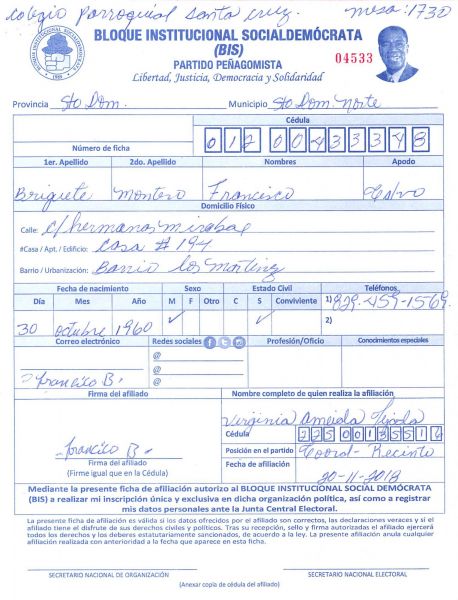 Colegio Parroquial Santa Cruz. mesa: 1730
BLOQUE INSTITUCIONAL SOCIALDEMÓCRATA
(BIS)
PARTIDO PEÑAGOMISTA
Libertad, Justicia, Democracia y Solidaridad
04533
Provincia Sto Dom. Municipio Sto Dom. Norte
Cédula
Número de ficha 012 0043334 8
1er. Apellido 2do. Apellido Nombres Apodo
Brigete Montero Francisco Calvo
Domicilio Físico
Calle: c/ hermanas mirabal
#Casa / Apt. / Edificio: Casa # 194
Barrio / Urbanización: Barrio los
Fecha de nacimiento Sexo Estado Civil Teléfonos
Día Mes Año M F Otro C S Conviviente 1) 829-459-1569
30 octubre 1960 ✓ ✓ 2)
Correo electrónico Redes sociales Profesión/Oficio Conocimientos especiales
@
@
@
Francico B.
Firma del afiliado Nombre completo de quien realiza la afiliación
Virginia
Cédula 22500135516
Francico B. Posición en el partido Coord- Recinto
Firma del afiliado Fecha de afiliación
(Firme igual que en la Cédula) 20-11-2018
Mediante la presente ficha de afiliación autorizo al BLOQUE INSTITUCIONAL SOCIAL DEMÓCRATA
(BIS) a realizar mi inscripción única y exclusiva en dicha organización política, así como a registrar
mis datos personales ante la Junta Central Electoral.
La presente ficha de afiliación es válida si los datos ofrecidos por el afiliado son correctos, las declaraciones veraces y si el
afiliado tiene el disfrute de sus derechos civiles y políticos. Tras su recepción, sello y firma autorizadas el afiliado ejercerá
todos los derechos y los deberes estatutariamente sancionados, de acuerdo a la ley. La presente afiliación anula cualquier
afiliación realizada con anterioridad a la fecha que aparece en esta ficha.
SECRETARIO NACIONAL DE ORGANIZACIÓN SECRETARIO NACIONAL ELECTORAL
(Anexar copia de cédula del afiliado)